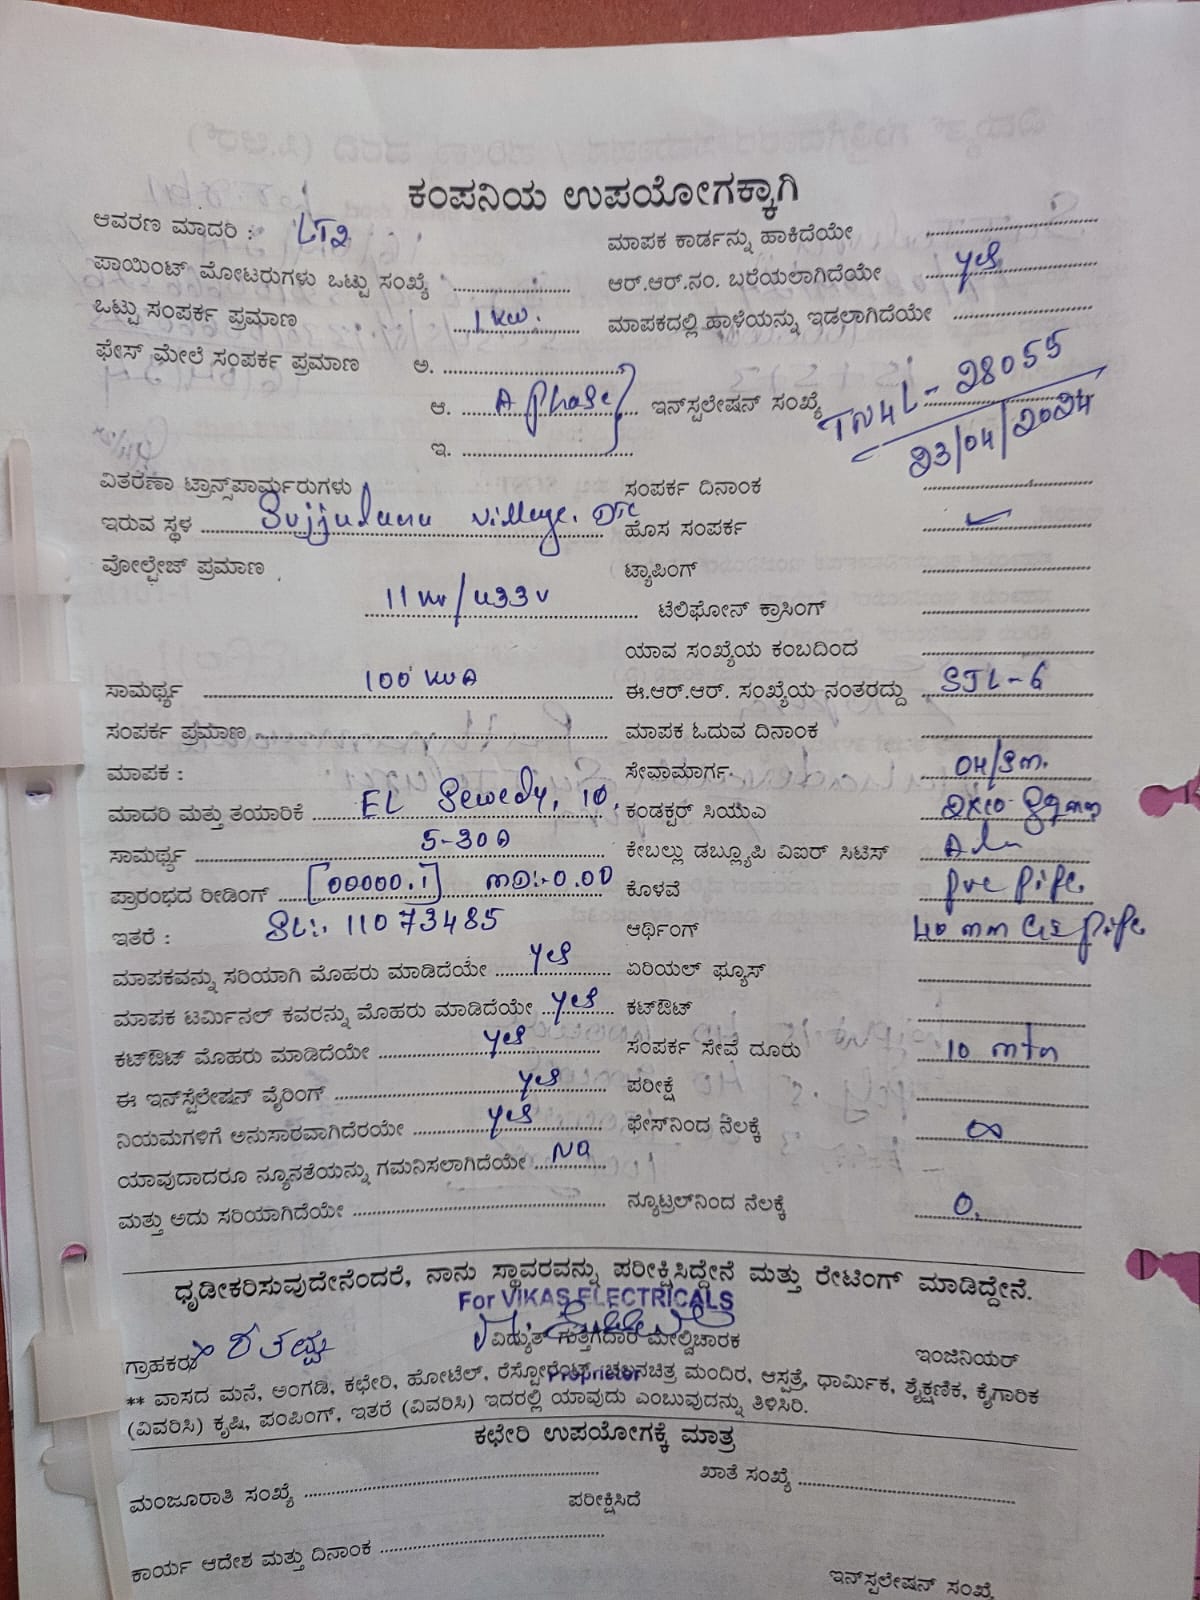 ಕಂಪನಿಯ ಉಪಯೋಗಕ್ಕಾಗಿ
ಆವರಣ ಮಾದರಿ : LT2
ಮಾಪಕ ಕಾರ್ಡನ್ನು ಹಾಕಿದೆಯೇ
ಪಾಯಿಂಟ್ ಮೋಟರುಗಳು ಒಟ್ಟು ಸಂಖ್ಯೆ
ಆರ್.ಆರ್.ನಂ. ಬರೆಯಲಾಗಿದೆಯೇ yes
ಒಟ್ಟು ಸಂಪರ್ಕ ಪ್ರಮಾಣ 1 kw.
ಮಾಪಕದಲ್ಲಿ ಹಾಳೆಯನ್ನು ಇಡಲಾಗಿದೆಯೇ
ಫೇಸ್ ಮೇಲೆ ಸಂಪರ್ಕ ಪ್ರಮಾಣ ಅ.
ಆ. A phase
ಇನ್‌ಸ್ಟಲೇಷನ್ ಸಂಖ್ಯೆ TN4L-28055
ಇ.
23/04/2024
ವಿತರಣಾ ಟ್ರಾನ್ಸ್‌ಪಾರ್ಮರುಗಳು
ಸಂಪರ್ಕ ದಿನಾಂಕ
ಇರುವ ಸ್ಥಳ village.
ಹೊಸ ಸಂಪರ್ಕ ✓
ವೋಲ್ಟೇಜ್ ಪ್ರಮಾಣ
ಟ್ಯಾಪಿಂಗ್
11 kv/433v
ಟೆಲಿಫೋನ್ ಕ್ರಾಸಿಂಗ್
ಯಾವ ಸಂಖ್ಯೆಯ ಕಂಬದಿಂದ
ಸಾಮರ್ಥ್ಯ 100 KVA
ಈ.ಆರ್.ಆರ್. ಸಂಖ್ಯೆಯ ನಂತರದ್ದು SJL-6
ಸಂಪರ್ಕ ಪ್ರಮಾಣ
ಮಾಪಕ ಓದುವ ದಿನಾಂಕ
ಮಾಪಕ :
ಸೇವಾಮಾರ್ಗ
ಮಾದರಿ ಮತ್ತು ತಯಾರಿಕೆ EL Sewedy, 10,
ಕಂಡಕ್ಟರ್ ಸಿಯುಎ
ಸಾಮರ್ಥ್ಯ 5-30A
ಕೇಬಲ್ಲು ಡಬ್ಲ್ಯೂಪಿ ವಿಐರ್ ಸಿಟಿಸ್
ಪ್ರಾರಂಭದ ರೀಡಿಂಗ್ [00000.1] MD:-0.00
ಕೊಳವೆ pvc pipe.
ಇತರೆ : SL:. 11073485
ಆರ್ಥಿಂಗ್ 40 mm GI pipe
ಮಾಪಕವನ್ನು ಸರಿಯಾಗಿ ಮೊಹರು ಮಾಡಿದೆಯೇ yes
ಏರಿಯಲ್ ಫ್ಯೂಸ್
ಮಾಪಕ ಟರ್ಮಿನಲ್ ಕವರನ್ನು ಮೊಹರು ಮಾಡಿದೆಯೇ yes
ಕಟ್‌ಔಟ್
ಕಟ್‌ಔಟ್ ಮೊಹರು ಮಾಡಿದೆಯೇ yes
ಸಂಪರ್ಕ ಸೇವೆ ದೂರು 10 mtr
ಈ ಇನ್‌ಸ್ಟೆಲೇಷನ್ ವೈರಿಂಗ್ yes
ಪರೀಕ್ಷೆ
ನಿಯಮಗಳಿಗೆ ಅನುಸಾರವಾಗಿದೆರಯೇ yes
ಫೇಸ್‌ನಿಂದ ನೆಲಕ್ಕೆ ∞
ಯಾವುದಾದರೂ ನ್ಯೂನತೆಯನ್ನು ಗಮನಿಸಲಾಗಿದೆಯೇ No
ಮತ್ತು ಅದು ಸರಿಯಾಗಿದೆಯೇ
ನ್ಯೂಟ್ರಲ್‌ನಿಂದ ನೆಲಕ್ಕೆ 0.
ಧೃಡೀಕರಿಸುವುದೇನೆಂದರೆ, ನಾನು ಸ್ಥಾವರವನ್ನು ಪರೀಕ್ಷಿಸಿದ್ದೇನೆ ಮತ್ತು ರೇಟಿಂಗ್ ಮಾಡಿದ್ದೇನೆ.
For VIKAS ELECTRICALS
ವಿದ್ಯುತ್ ಗುತ್ತಿಗೆದಾರ ಮೇಲ್ವಿಚಾರಕ
ಗ್ರಾಹಕರು
ಇಂಜಿನಿಯರ್
Proprietor
** ವಾಸದ ಮನೆ, ಅಂಗಡಿ, ಕಛೇರಿ, ಹೋಟೆಲ್, ರೆಸ್ಟೋರೆಂಟ್, ಚಲನಚಿತ್ರ ಮಂದಿರ, ಆಸ್ಪತ್ರೆ, ಧಾರ್ಮಿಕ, ಶೈಕ್ಷಣಿಕ, ಕೈಗಾರಿಕ
(ವಿವರಿಸಿ) ಕೃಷಿ, ಪಂಪಿಂಗ್, ಇತರೆ (ವಿವರಿಸಿ) ಇದರಲ್ಲಿ ಯಾವುದು ಎಂಬುವುದನ್ನು ತಿಳಿಸಿರಿ.
ಕಛೇರಿ ಉಪಯೋಗಕ್ಕೆ ಮಾತ್ರ
ಮಂಜೂರಾತಿ ಸಂಖ್ಯೆ
ಖಾತೆ ಸಂಖ್ಯೆ
ಪರೀಕ್ಷಿಸಿದೆ
ಕಾರ್ಯ ಆದೇಶ ಮತ್ತು ದಿನಾಂಕ
ಇನ್‌ಸ್ಟಲೇಷನ್ ಸಂಖ್ಯೆ